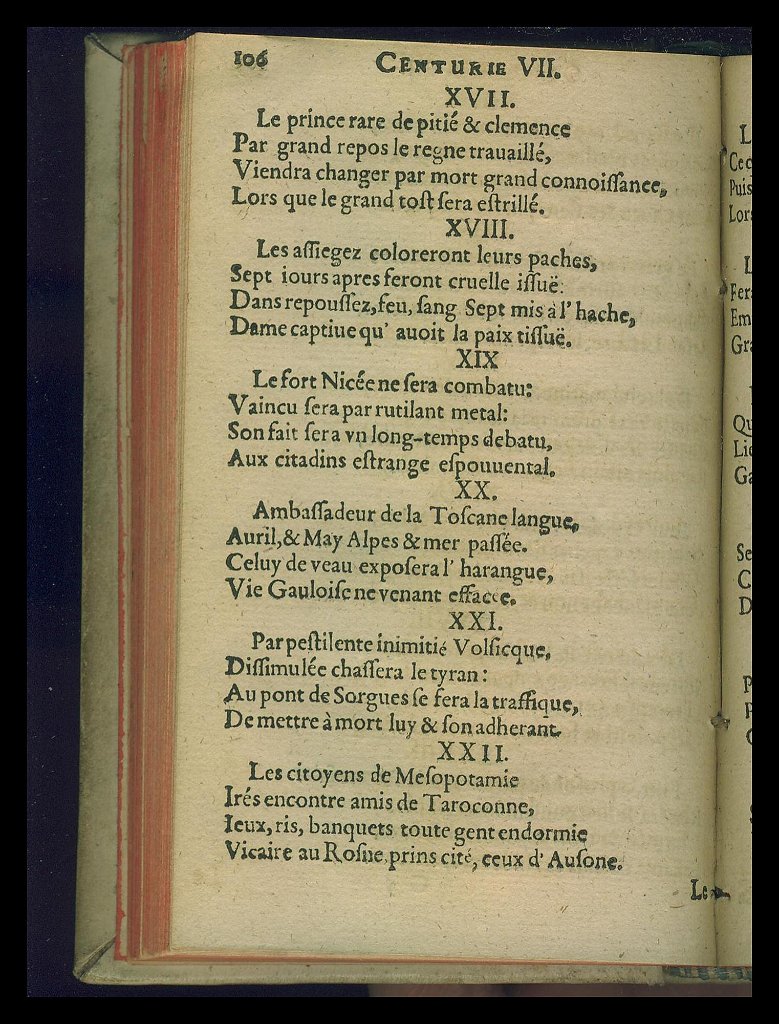 106 CENTURIE VII.
XVII.
Le prince rare de pitié & clemence
Par grand repos le regne trauaillé,
Viendra changer par mort grand connoiſſance,
Lors que le grand toſt ſera eſtrillé.
XVIII.
Les aſſiegez coloreront leurs paches,
Sept iours apres feront cruelle iſſuë:
Dans repouſſez, feu, ſang Sept mis à l' hache,
Dame captiue qu' auoit la paix tiſſuë.
XIX
Le fort Nicée ne ſera combatu:
Vaincu ſera par rutilant metal:
Son fait ſera vn long-temps debatu,
Aux citadins eſtrange eſpouuental.
XX.
Ambaſſadeur de la Toſcane langue,
Auril, & May Alpes & mer paſſée.
Celuy de veau expoſera l' harangue,
Vie Gauloiſe ne venant effacée.
XXI.
Par peſtilente inimitié Volſicque,
Diſſimulée chaſſera le tyran:
Au pont de Sorgues ſe fera la traffique,
De mettre à mort luy & ſon adherant.
XXII.
Les citoyens de Meſopotamie
Irés encontre amis de Taroconne,
Ieux, ris, banquets toute gent endormie
Vicaire au Roſne, prins cité, ceux d' Auſone.
Le
L
Ce
Puis
Lors
L
Fer
Em
Gra
Qu
Lie
Ga
Se
C
D
P
P